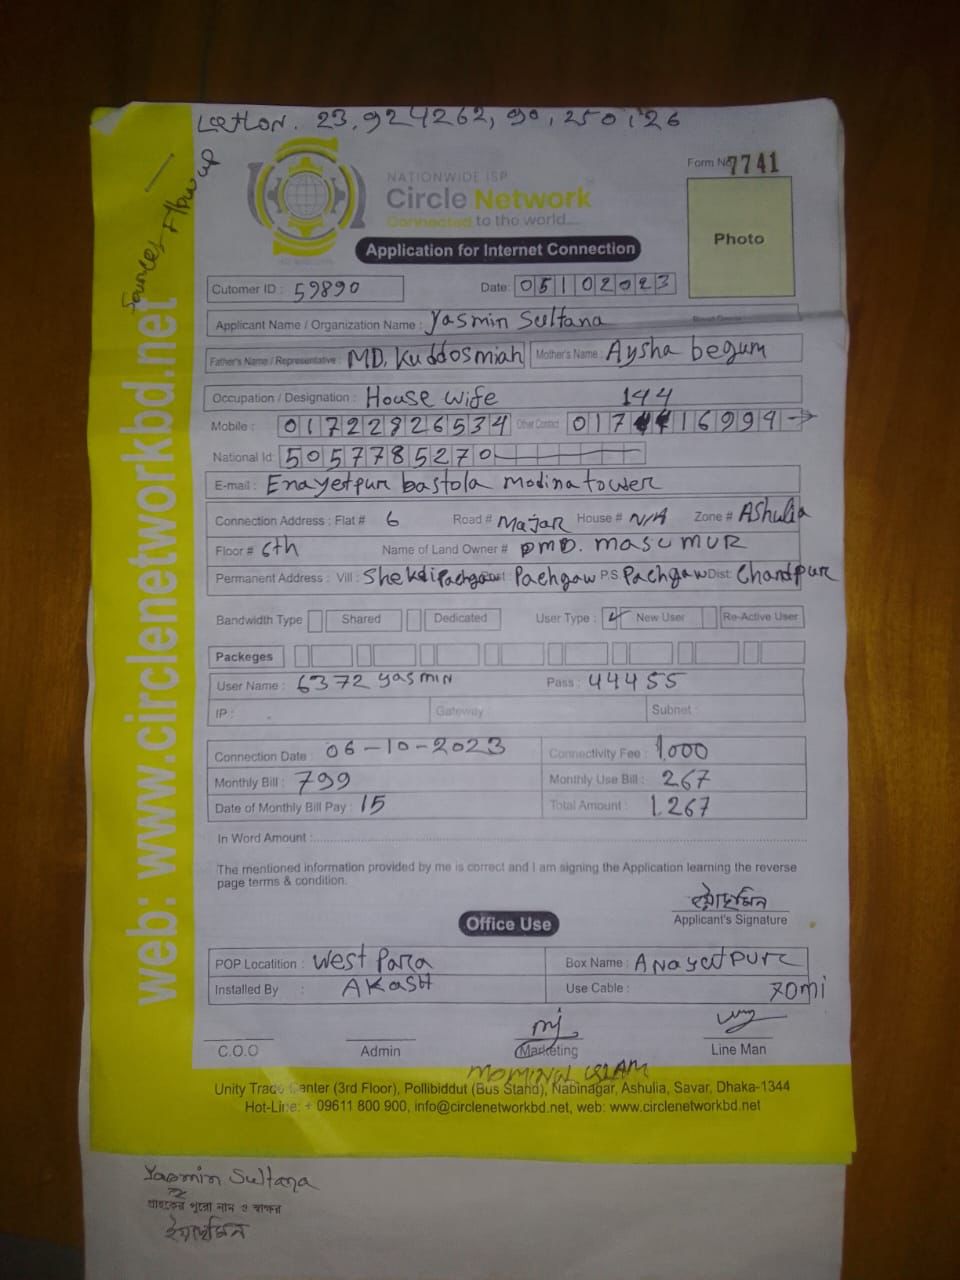 23.924262, 90.250126
Sources
NATIONWIDE ISP
Circle Network
Connected to the world....
Form No 7741
Photo
Application for Internet Connection
Cutomer ID : 59890 Date: 05102023
Applicant Name / Organization Name : Yasmin Sultana
Father's Name / Representative : MD. Kuddosmiah Mother's Name : Aysha begum
Occupation / Designation : House wife 144
Mobile : 01722826534 Other Contact 017 16994
National Id: 5057785270
E-mail : Enayetpur bastola modina tower
Connection Address : Flat # 6 Road # Majar House # N/A Zone # Ashulia
Floor # 6th Name of Land Owner # MD. masumur
Permanent Address : Vill : Pachgaw Pachgaw P.S. Pachgaw Dist: Chandpur
Bandwidth Type Shared Dedicated User Type : New User Re-Active User
Packeges
User Name : 6372 yasmin Pass : 44455
IP : Gateway Subnet :
Connection Date : 06-10-2023 Connectivity Fee : 1,000
Monthly Bill : 799 Monthly Use Bill : 267
Date of Monthly Bill Pay : 15 Total Amount : 1,267
In Word Amount :
The mentioned information provided by me is correct and I am signing the Application learning the reverse
page terms & condition.
ইয়াছমিন
Applicant's Signature
Office Use
POP Locatition : West Para Box Name : Anayetpur
Installed By : AKASH Use Cable : 70mi
C.O.O Admin Marketing Line Man
MOMINUL ISLAM
Unity Trade Center (3rd Floor), Pollibiddut (Bus Stand), Nabinagar, Ashulia, Savar, Dhaka-1344
Hot-Line: + 09611 800 900, info@circlenetworkbd.net, web: www.circlenetworkbd.net
web: www.circlenetworkbd.net
Yasmin Sultana
গ্রাহকের পুরো নাম ও স্বাক্ষর
ইয়াছমিন